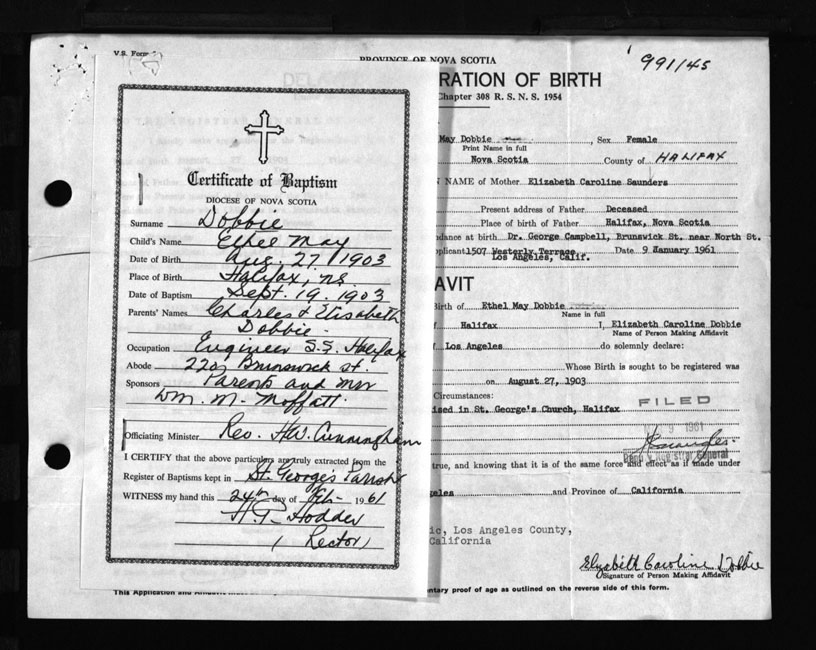 V.S. Form
PROVINCE OF NOVA SCOTIA
991/45
RATION OF BIRTH
Chapter 308 R. S. N. S. 1954
Certificate of Baptism
DIOCESE OF NOVA SCOTIA
Surname Dobbie
Child's Name Ethel May
Date of Birth Aug. 27 1903
Place of Birth Halifax, NS
Date of Baptism Sept. 19. 1903
Parents' Names Charles & Elisabeth
Dobbie
Occupation Engineer S.S. Halifax
Abode 220 Brunswick St.
Sponsors Parents and Mrs
Wm. M. Moffatt.
Officiating Minister Rev. H.W. Cunningham
I CERTIFY that the above particulars are truly extracted from the
Register of Baptisms kept in St. George's Parish
WITNESS my hand this 24th day of Feb- 1961
H. T. Hodder
(Rector)
May Dobbie, Sex Female
Print Name in full
Nova Scotia County of HALIFAX
NAME of Mother Elizabeth Caroline Saunders
Present address of Father Deceased
Place of birth of Father Halifax, Nova Scotia
dance at birth Dr. George Campbell, Brunswick St. near North St.
plicant 1507 Westerly Terrace Date 9 January 1961
Los Angeles, Calif.
AVIT
Birth of Ethel May Dobbie
Name in full
Halifax I, Elizabeth Caroline Dobbie
Name of Person Making Affidavit
Los Angeles do solemnly declare:
Whose Birth is sought to be registered was
on August 27, 1903
Circumstances:
ised in St. George's Church, Halifax
FILED
9 1961
Registrar General
true, and knowing that it is of the same force and effect as if made under
geles and Province of California
ic, Los Angeles County,
California
Elizabeth Caroline Dobbie
Signature of Person Making Affidavit
This Application and
ntary proof of age as outlined on the reverse side of this form.